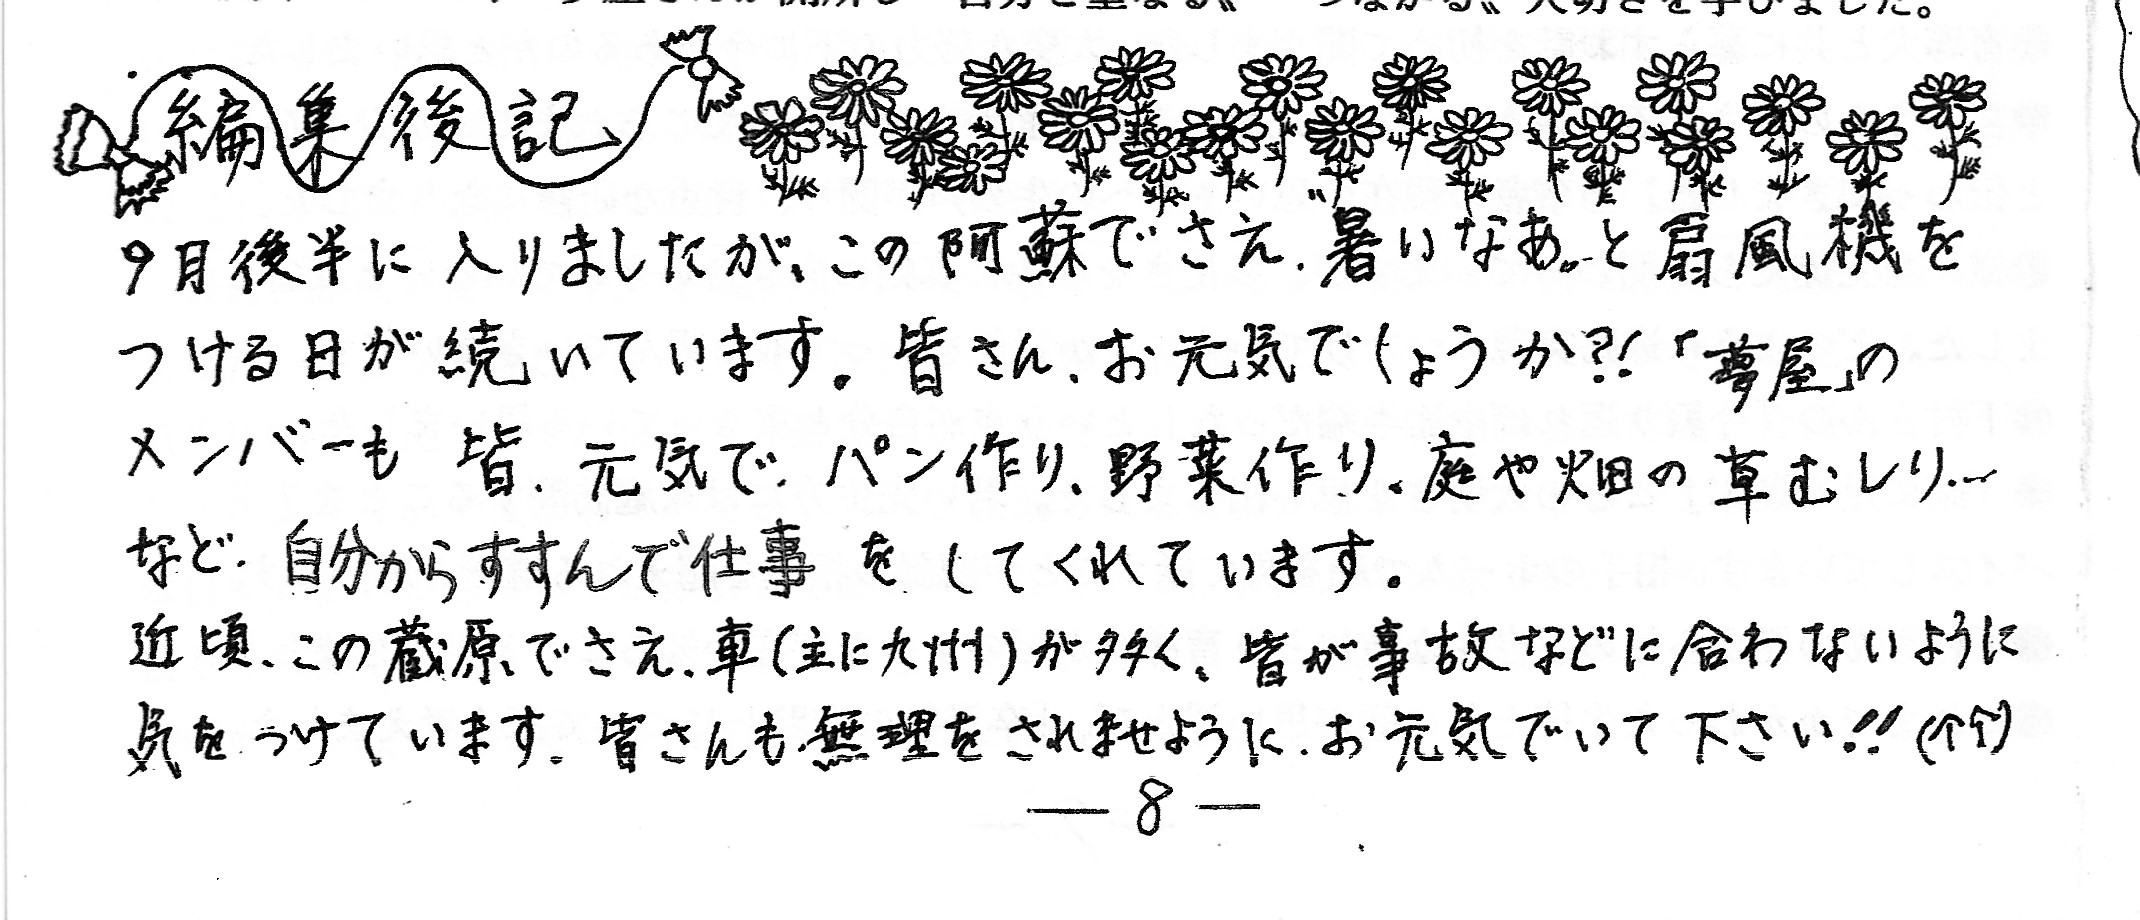 編集後記
9月後半に入りましたが、この阿蘇でさえ、〝暑いなあ〟と扇風機を
つける日が続いています。皆さん、お元気でしょうか?!「夢屋」の
メンバーも皆、元気で、パン作り、野菜作り、庭や畑の草むしり…
など、自分からすすんで仕事をしてくれています。
近頃、この蔵原でさえ、車(主に九州)が多く、皆が事故などに合わないように
気をつけています。皆さんも無理をされませように、お元気でいて下さい!!
— 8 —